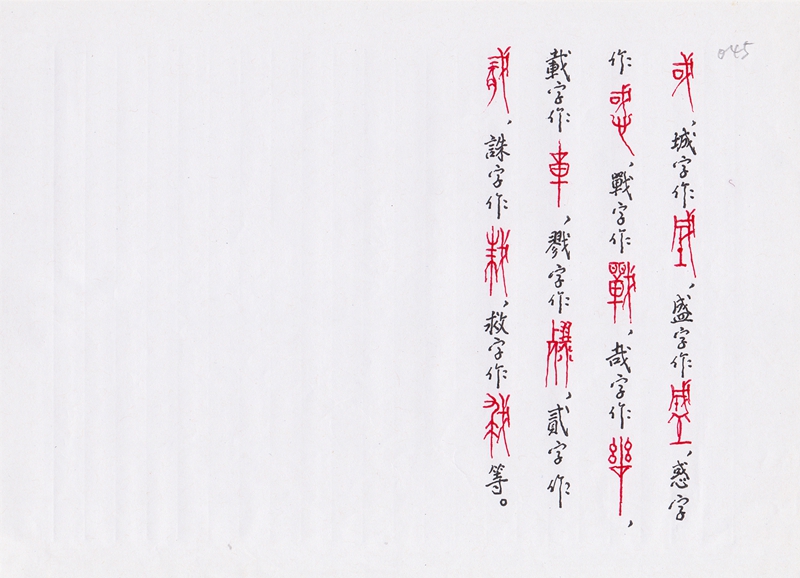 045
，城字作，盛字作，惑字
作，戰字作，哉字作，
載字作，戮字作，貳字作
，誅字作，救字作等。